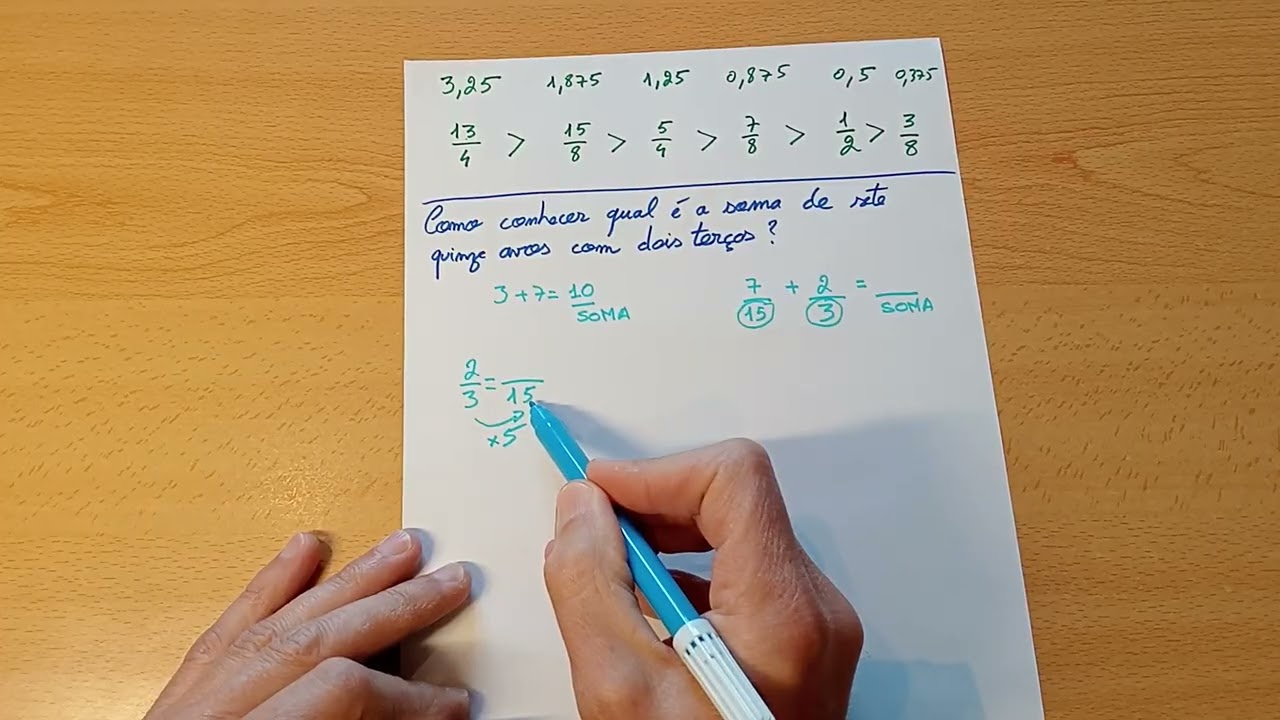 3,25 1,875 1,25 0,875 0,5 0,375
13/4 > 15/8 > 5/4 > 7/8 > 1/2 > 3/8
Como conhecer qual é a soma de sete
quinze avos com dois terços?
3 + 7 = 10
SOMA
7/15 + 2/3 = __
SOMA
2/3 = __/15
×5